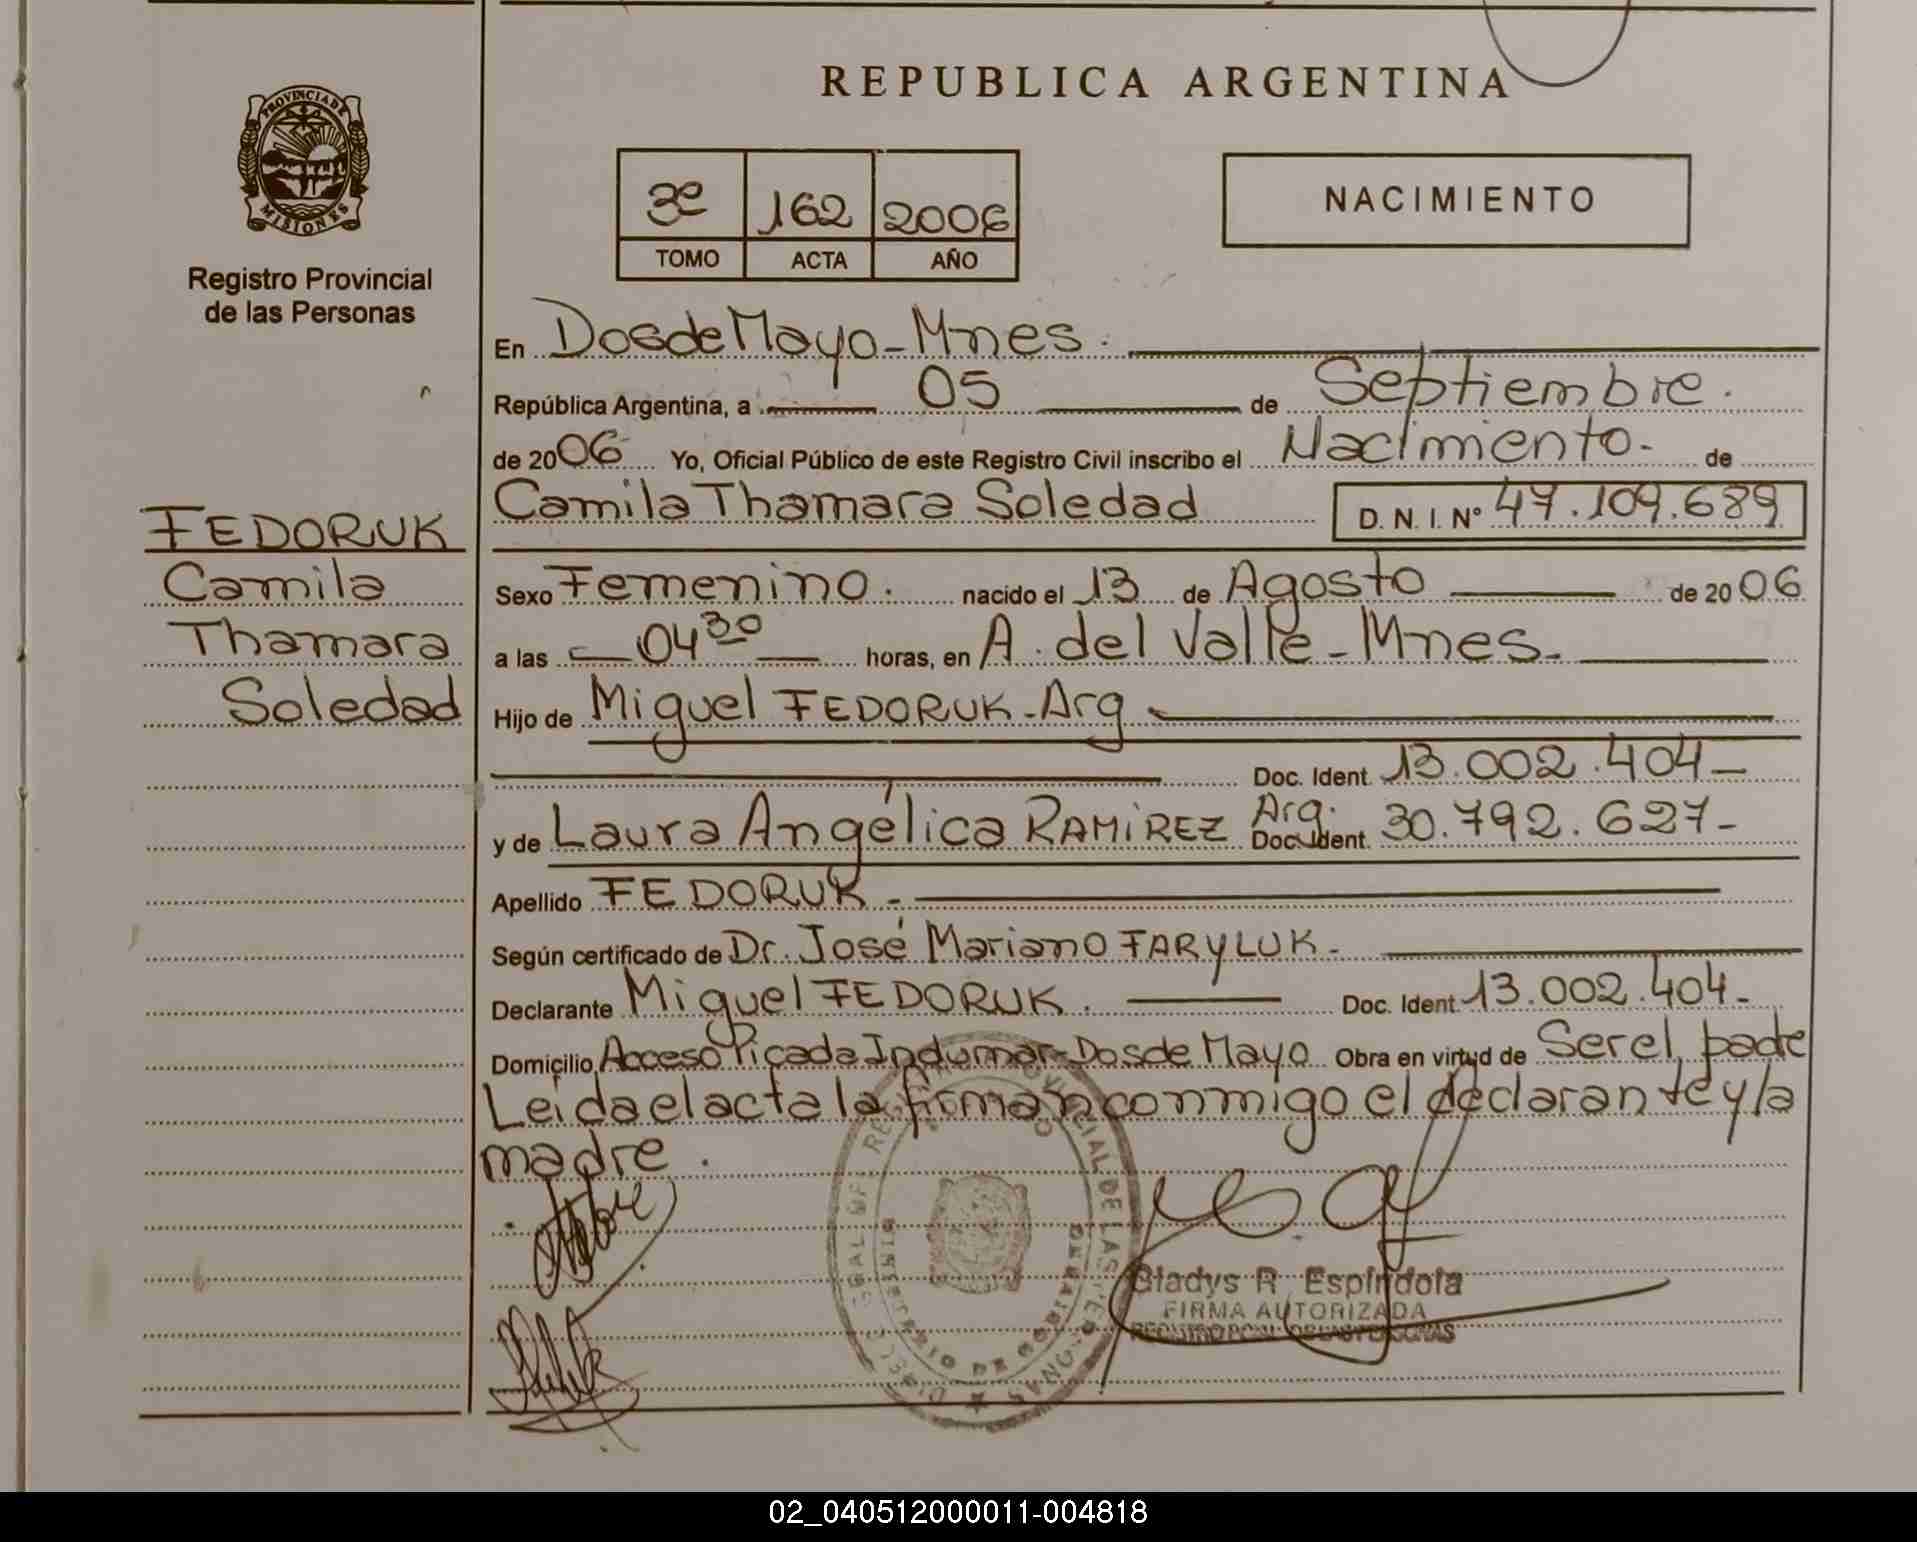 REPUBLICA ARGENTINA
PROVINCIA DE
MISIONES
Registro Provincial
de las Personas
3º 162 2006
TOMO ACTA AÑO
NACIMIENTO
En Dos de Mayo - Mnes.
República Argentina, a 05 de Septiembre.
de 2006 Yo, Oficial Público de este Registro Civil inscribo el Nacimiento - de
Camila Thamara Soledad D. N. I. Nº 47.109.689
FEDORUK
Camila
Thamara
Soledad
Sexo Femenino. nacido el 13 de Agosto de 2006
a las 04 30 horas, en A. del Valle - Mnes.
Hijo de Miguel FEDORUK - Arg
Doc. Ident. 13.002.404 -
y de Laura Angélica RAMIREZ Arg. Doc. Ident. 30.792.627 -
Apellido FEDORUK -
Según certificado de Dr. José Mariano FARYLUK -
Declarante Miguel FEDORUK. Doc. Ident. 13.002.404 -
Domicilio Acceso Picada Indumar - Dos de Mayo Obra en virtud de Ser el padre
Leída el acta la firman conmigo el declarante y la
madre.
Gladys R. Espindola
FIRMA AUTORIZADA
REGISTRO PCIAL. DE LAS PERSONAS
02_040512000011-004818